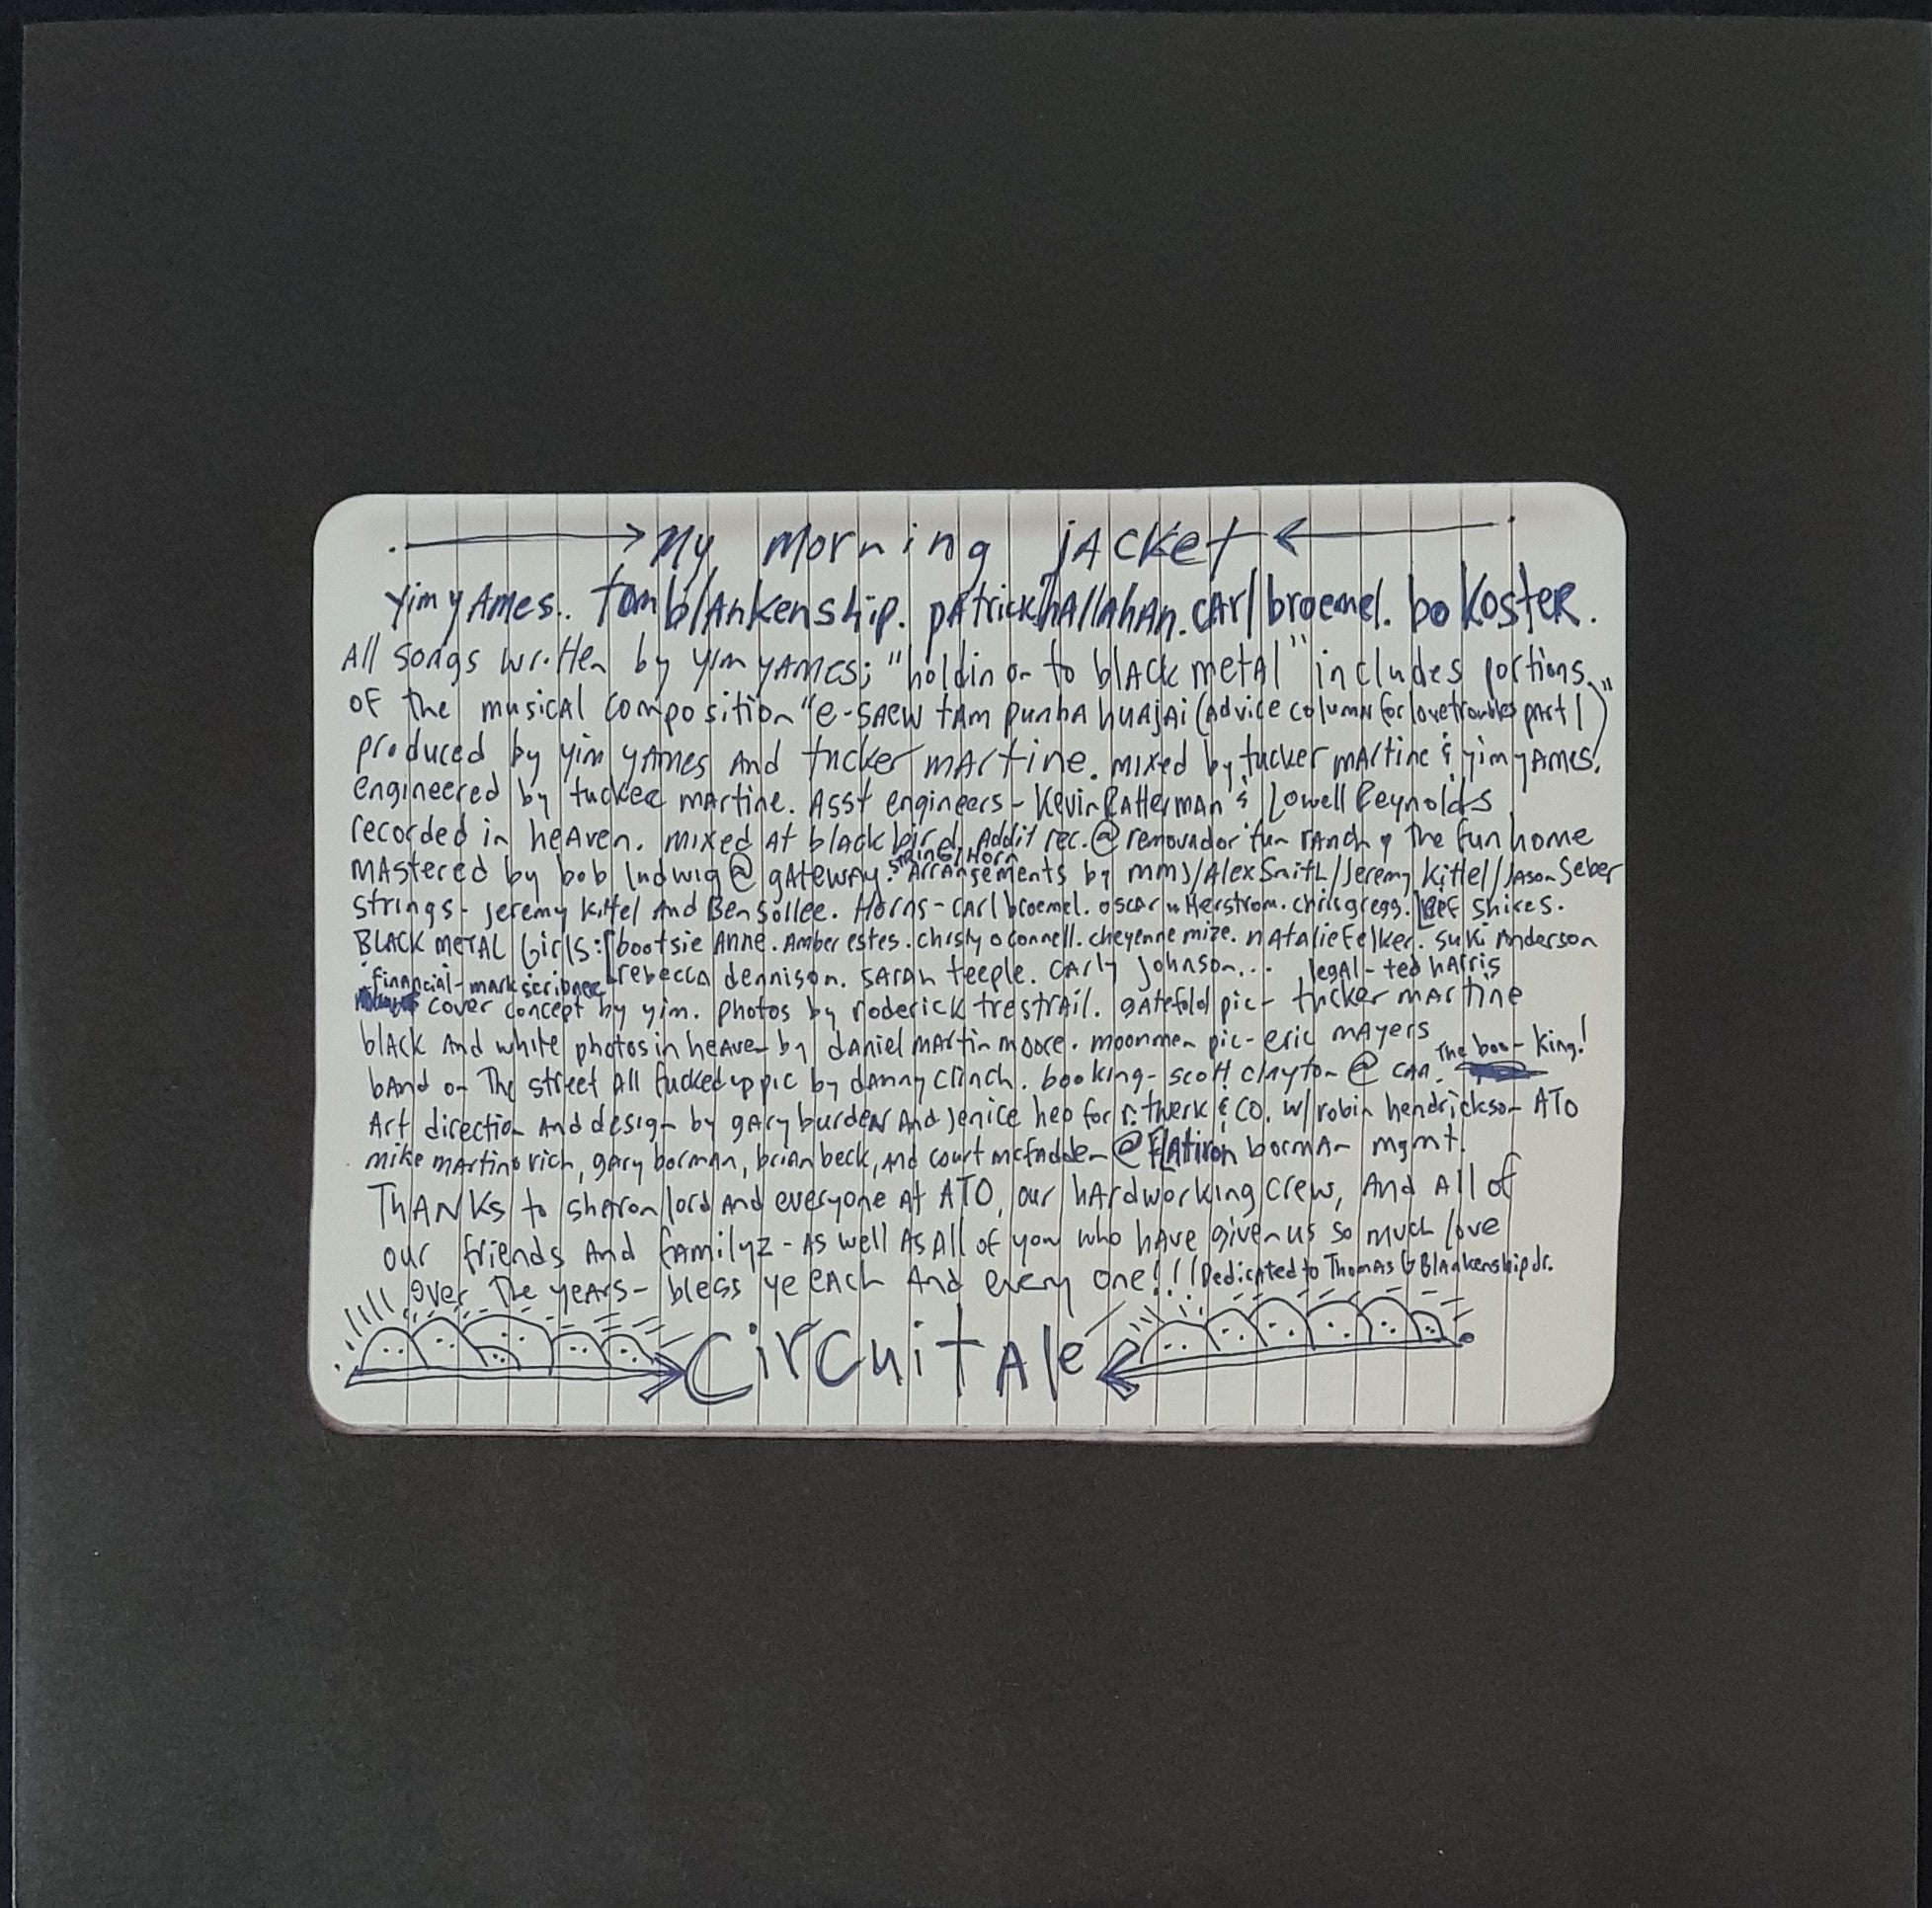 My morning jacket
yim yAmes.. tom blAnkenship. pAtrick hAllAhAn. cArl broemel. bo KosteR.
All songs written by yim yAmes; "holdin on to blAck metAl" includes portions
of the musicAl composition "e-sAew tAm punhA huAjAi (Advice column for love troubles part 1)"
produced by yim yAmes And tucker mArtine. mixed by tucker mArtine & yim yAmes.
engineered by tucker mArtine. Asst engineers - Kevin RAtterman & Lowell Reynolds
recorded in heAven. mixed At blAck bird. Addit rec. @ removador fun rAnch & the fun home
string/Horn
mAstered by bob ludwig @ gAtewAy. ArrAngements by mmj/Alex Smith/Jeremy Kittel/JAson Seber
strings - jeremy kittel And Ben Sollee. Horns - cArl broemel. oscAr utterstrom. chris gregg. leif shires.
BLACK METAL GirlS: bootsie Anne. Amber estes. christy o connell. cheyenne mize. nAtAlie felker. suki Anderson
rebecca dennison. sArAh teeple. cArly johnson... legAl - ted hArris
financial - mark scribner
cover concept by yim. photos by roderick trestrAil. gAtefold pic - tucker mArtine
blAck And white photos in heAven by dAniel mArtin moore. moonmen pic - eric mAyers
bAnd on The street All fucked up pic by dAnny clinch. booking - scott clAyton @ CAA. The boo-king!
Art direction And design by gAry burden And jenice heo for r. twerk & co. w/ robin hendrickson ATO
mike mArtinovich, gAry bormAn, briAn beck, And court mcfAdden @ FlAtiron bormAn mgmt.
THANKS to shAron lord And everyone At ATO, our hArdworking crew, And All of
our friends And fAmilyz - As well As All of you who hAve given us so much love
over The yeArs - bless ye eAch And every one!!! Dedicated to Thomas G Blankenship Jr.
CircuitAle